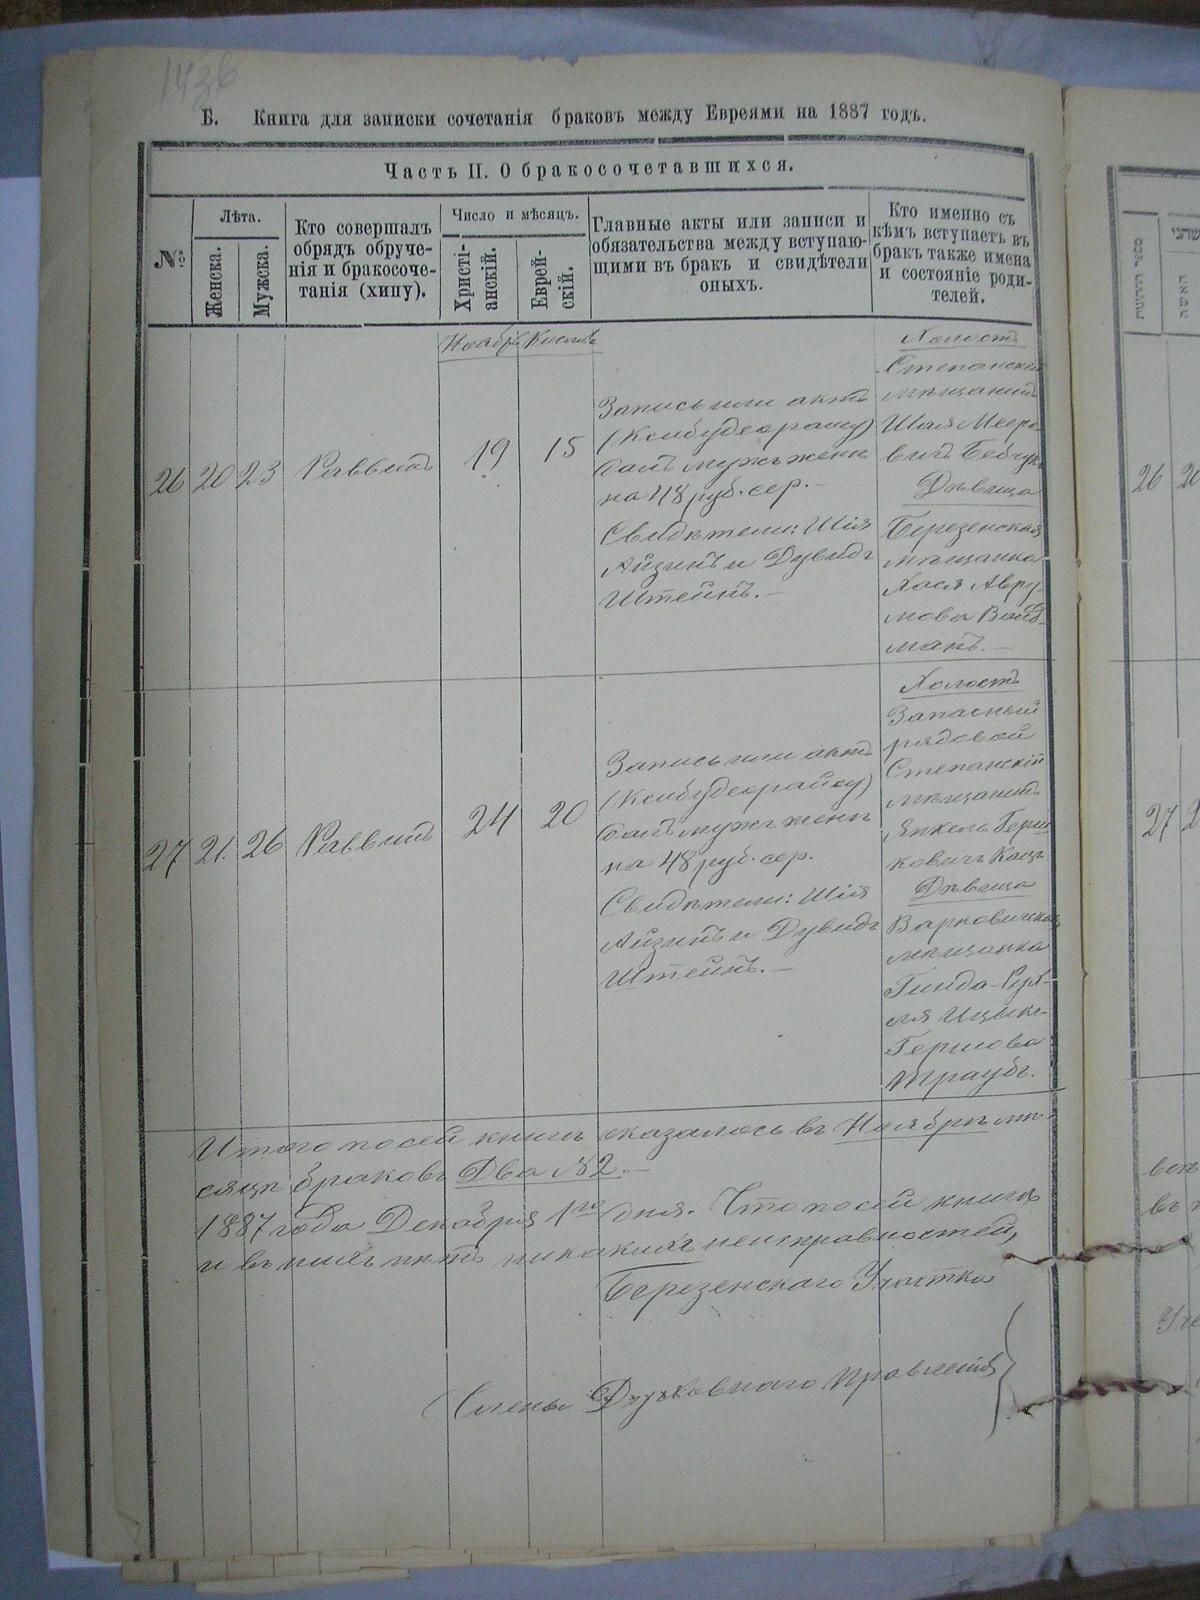 1436
Б. Книга для записки сочетанія браковъ между Евреями на 1887 годъ.
Часть II. О бракосочетавшихся.
№
Лѣта.
Женска.
Мужска.
Кто совершалъ
обрядъ обруче-
нія и бракосоче-
танія (хипу).
Число и мѣсяцъ.
Христі-
анскій.
Еврей-
скій.
Главные акты или записи и
обязательства между вступаю-
щими въ бракъ и свидѣтели
оныхъ.
Кто именно съ
кѣмъ вступаетъ въ
бракъ также имена
и состояніе роди-
телей.
Ноябрь Кислевъ
26 20 23 Раввинъ 19 15
Запись или актъ
(Ксибудеорайсу)
далъ мужъ женѣ
на 48 руб. сер. —
Свидѣтели: Шія
Айзинъ и Дувидъ
Штейнъ. —
Холостъ
Степанскій
мѣщанинъ
Шая Мееро
вичъ Бебчукъ
Дѣвица
Березенская
мѣщанка
Хася Авру-
мова Вайд-
манъ. —
27 21 26 Раввинъ 24 20
Запись или актъ
(Ксибудеорайсу)
далъ мужъ женѣ
на 48 руб. сер.
Свидѣтели: Шія
Айзинъ и Дувидъ
Штейнъ. —
Холостъ
Запасный
рядовой
Степанскій
мѣщанинъ
Янкель Герш
ковичъ Кацъ
Дѣвица
Варковичская
мѣщанка
Гинда-Рух-
ля Ицык-
Гершова
Траубъ.
Итого по сей книгѣ оказалось въ Ноябрѣ мѣ-
сяцѣ браковъ Два №2. —
1887 года Декабря 1го дня. Что по сей книгѣ
и въ ней нѣтъ никакихъ неисправностей,
Березенскаго Участка
Члены Духовнаго Правленія
26 20
27 2